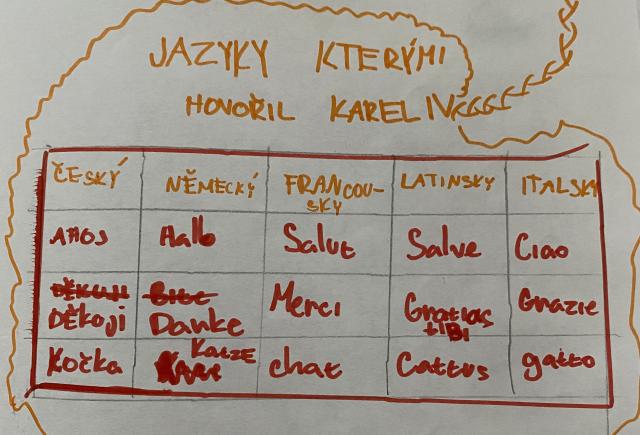 JAZYKY KTERÝMI
HOVOŘIL KAREL IV
ČESKÝ NĚMECKÝ FRANCOU-SKY LATINSKY ITALSKY
AHOS Hallo Salut Salve Ciao
DĚKUJI Bite
DĚKOJI Danke Merci Gratias tIBI Grazie
Kočka KatzE chat Cattus gatto